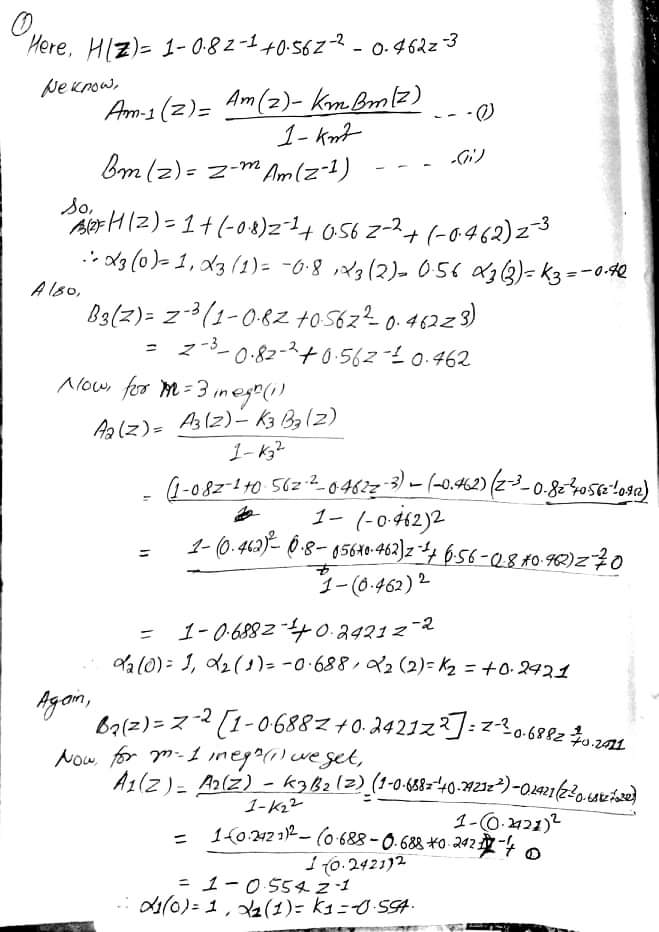 ①
Here, H(Z)= 1-0.8z-1+0.56z-2 - 0.462z-3
We know,
Am-1(z)= Am(z)- KmBm(z) / 1-km2 ---(i)
Bm(z)= z-m Am(z-1) - - - -(ii)
So,
A3(z)=H(z)= 1+(-0.8)z-1+ 0.56 z-2+ (-0.462)z-3
∴ α3(0)=1, α3(1)= -0.8, α3(2)= 0.56 α3(3)= K3 =-0.42
Also,
B3(z)= z-3(1-0.8z+0.56z2-0.462z3)
= z-3-0.8z-2+0.56z-1-0.462
Now, for m=3 in eqn(i)
A2(z)= A3(z)- K3 B3(z) / 1-K32
= (1-0.8z-1+0.56z-2-0.462z-3)-(-0.462)(z-3-0.8z-2+0.56z-1-0.462) / 1-(-0.462)2
= 1-(0.462)2-(0.8-0.56x0.462)z-1+(0.56-0.8x0.462)z-2+0 / 1-(0.462)2
= 1-0.688z-1+0.2421z-2
∴ α2(0)= 1, α2(1)= -0.688, α2(2)=K2 = +0.2421
Again,
B2(z)= z-2[1-0.688z+0.2421z2]= z-2-0.688z-1+0.2421
Now, for m-1 in eqn(i) we get,
A1(z)= A2(z) - K3B2(z) / 1-K22 = (1-0.688z-1+0.2421z-2)-0.2421(z-2-0.688z-1+0.242) / 1-(0.2421)2
= 1-(0.2421)2-(0.688-0.688x0.2421)z-1+0 / 1-(0.2421)2
= 1-0.554z-1
∴ α1(0)=1, α1(1)= K1=-0.554.